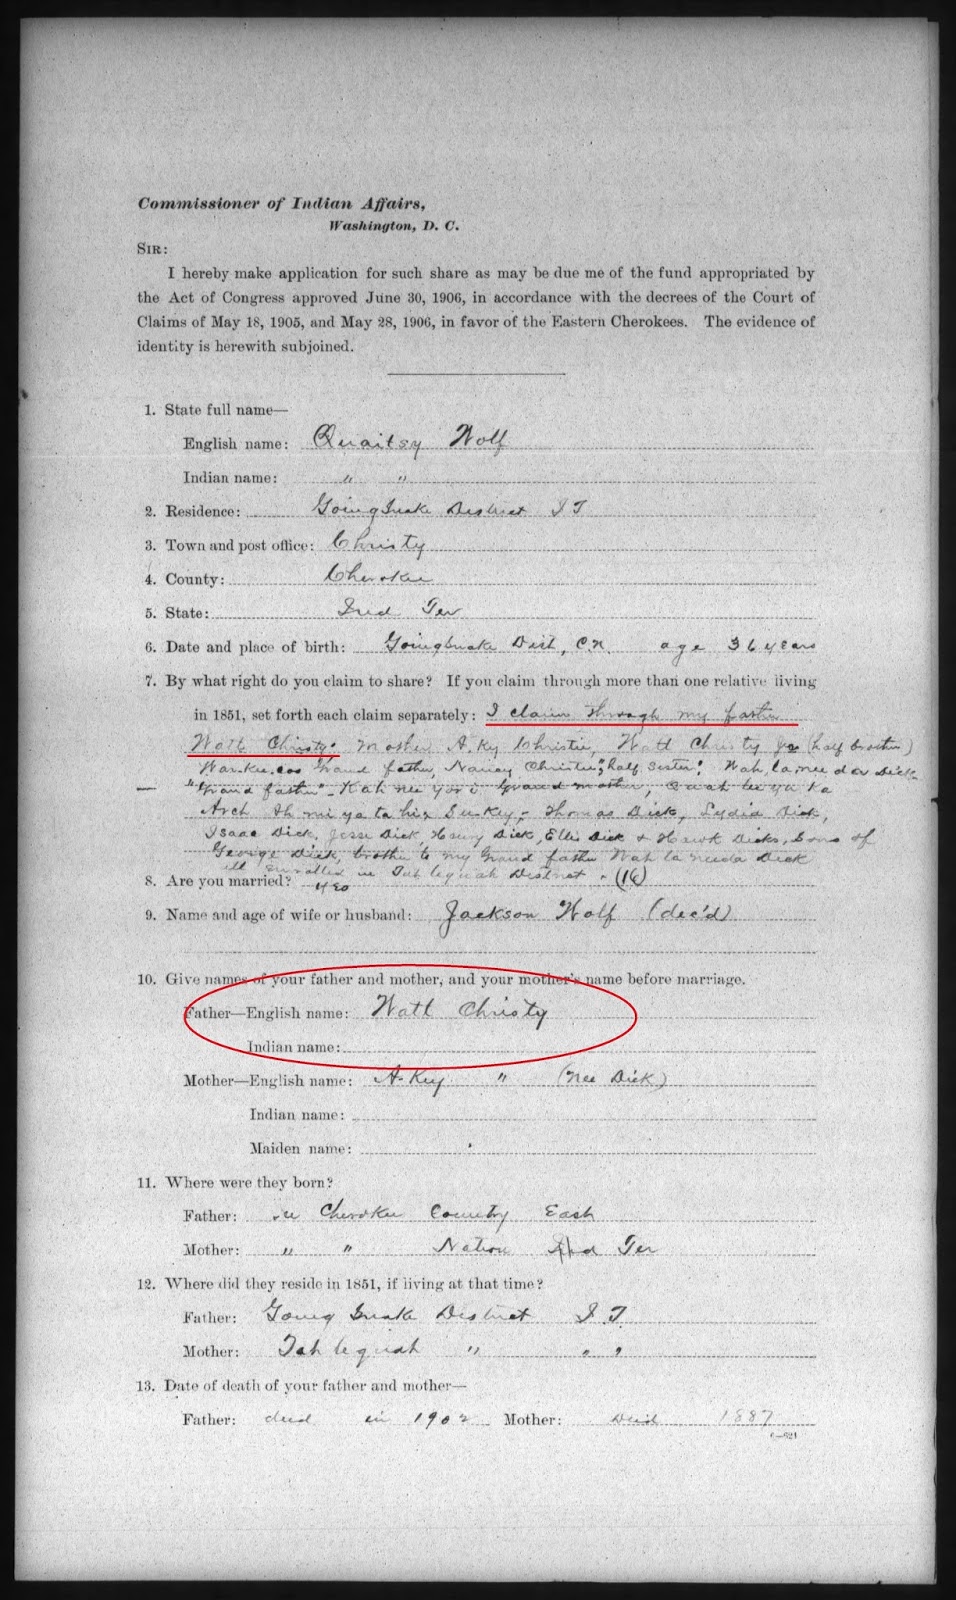 Commissioner of Indian Affairs,
Washington, D. C.
SIR:
I hereby make application for such share as may be due me of the fund appropriated by
the Act of Congress approved June 30, 1906, in accordance with the decrees of the Court of
Claims of May 18, 1905, and May 28, 1906, in favor of the Eastern Cherokees. The evidence of
identity is herewith subjoined.
1. State full name—
English name: Quaitsy Wolf
Indian name: " "
2. Residence: Going Snake District I T
3. Town and post office: Christy
4. County: Cherokee
5. State: Ind Ter
6. Date and place of birth: Goingsnake Dist, C.N. age 36 years
7. By what right do you claim to share? If you claim through more than one relative living
in 1851, set forth each claim separately: I claim through my father
Watt Christy. Mother A. Ky Christie, Watt Christy Jr (half brother)
Grand father, Nancy Christie, "half sister". Wah la nee da Dick
"Grand father" - Kah nee yo Grand mother,
Arch Sukey, - Thomas Dick, Lydia Dick,
Isaac Dick, Jesse Dick, Henry Dick, Ellis Dick & Hawk Dicks, Sons of
George Dick, brother to my Grand father Wah la needa Dick
all enrolled in Tahlequah District - (16)
8. Are you married? yes
9. Name and age of wife or husband: Jackson Wolf (dec'd)
10. Give names of your father and mother, and your mother's name before marriage.
Father—English name: Watt Christy
Indian name:
Mother—English name: A-Key " (nee Dick)
Indian name:
Maiden name:
11. Where were they born?
Father: in Cherokee Country East
Mother: " " Nation Ind Ter
12. Where did they reside in 1851, if living at that time?
Father: Going Snake District I. T.
Mother: Tahlequah " " "
13. Date of death of your father and mother—
Father: died in 1902 Mother: Died 1887
6—921